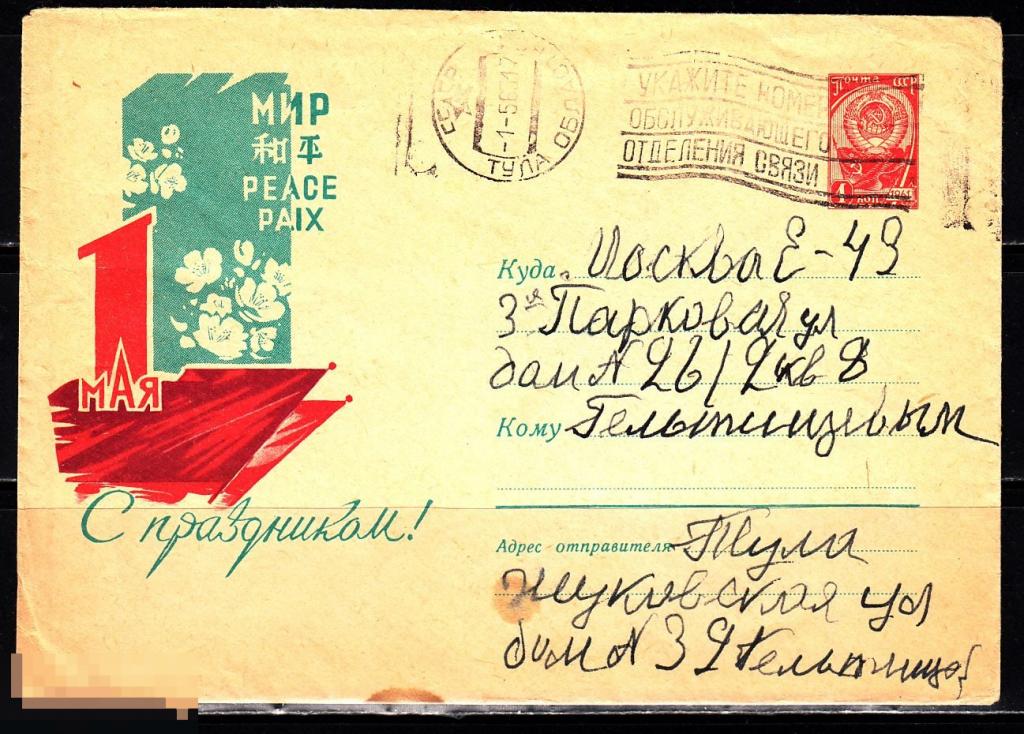 МИР
和平
PEACE
PAIX
1
МАЯ
С праздником!
СССР
ТУЛА ОБЛ.
УКАЖИТЕ НОМЕР
ОБСЛУЖИВАЮЩЕГО
ОТДЕЛЕНИЯ СВЯЗИ
Почта СССР
4 коп. 1961
Куда Москва Е-43
3я Парковая ул
дом N 26/2 кв 8
Кому Гельтищевым
Адрес отправителя Тула
Жуковская ул
дом N 39